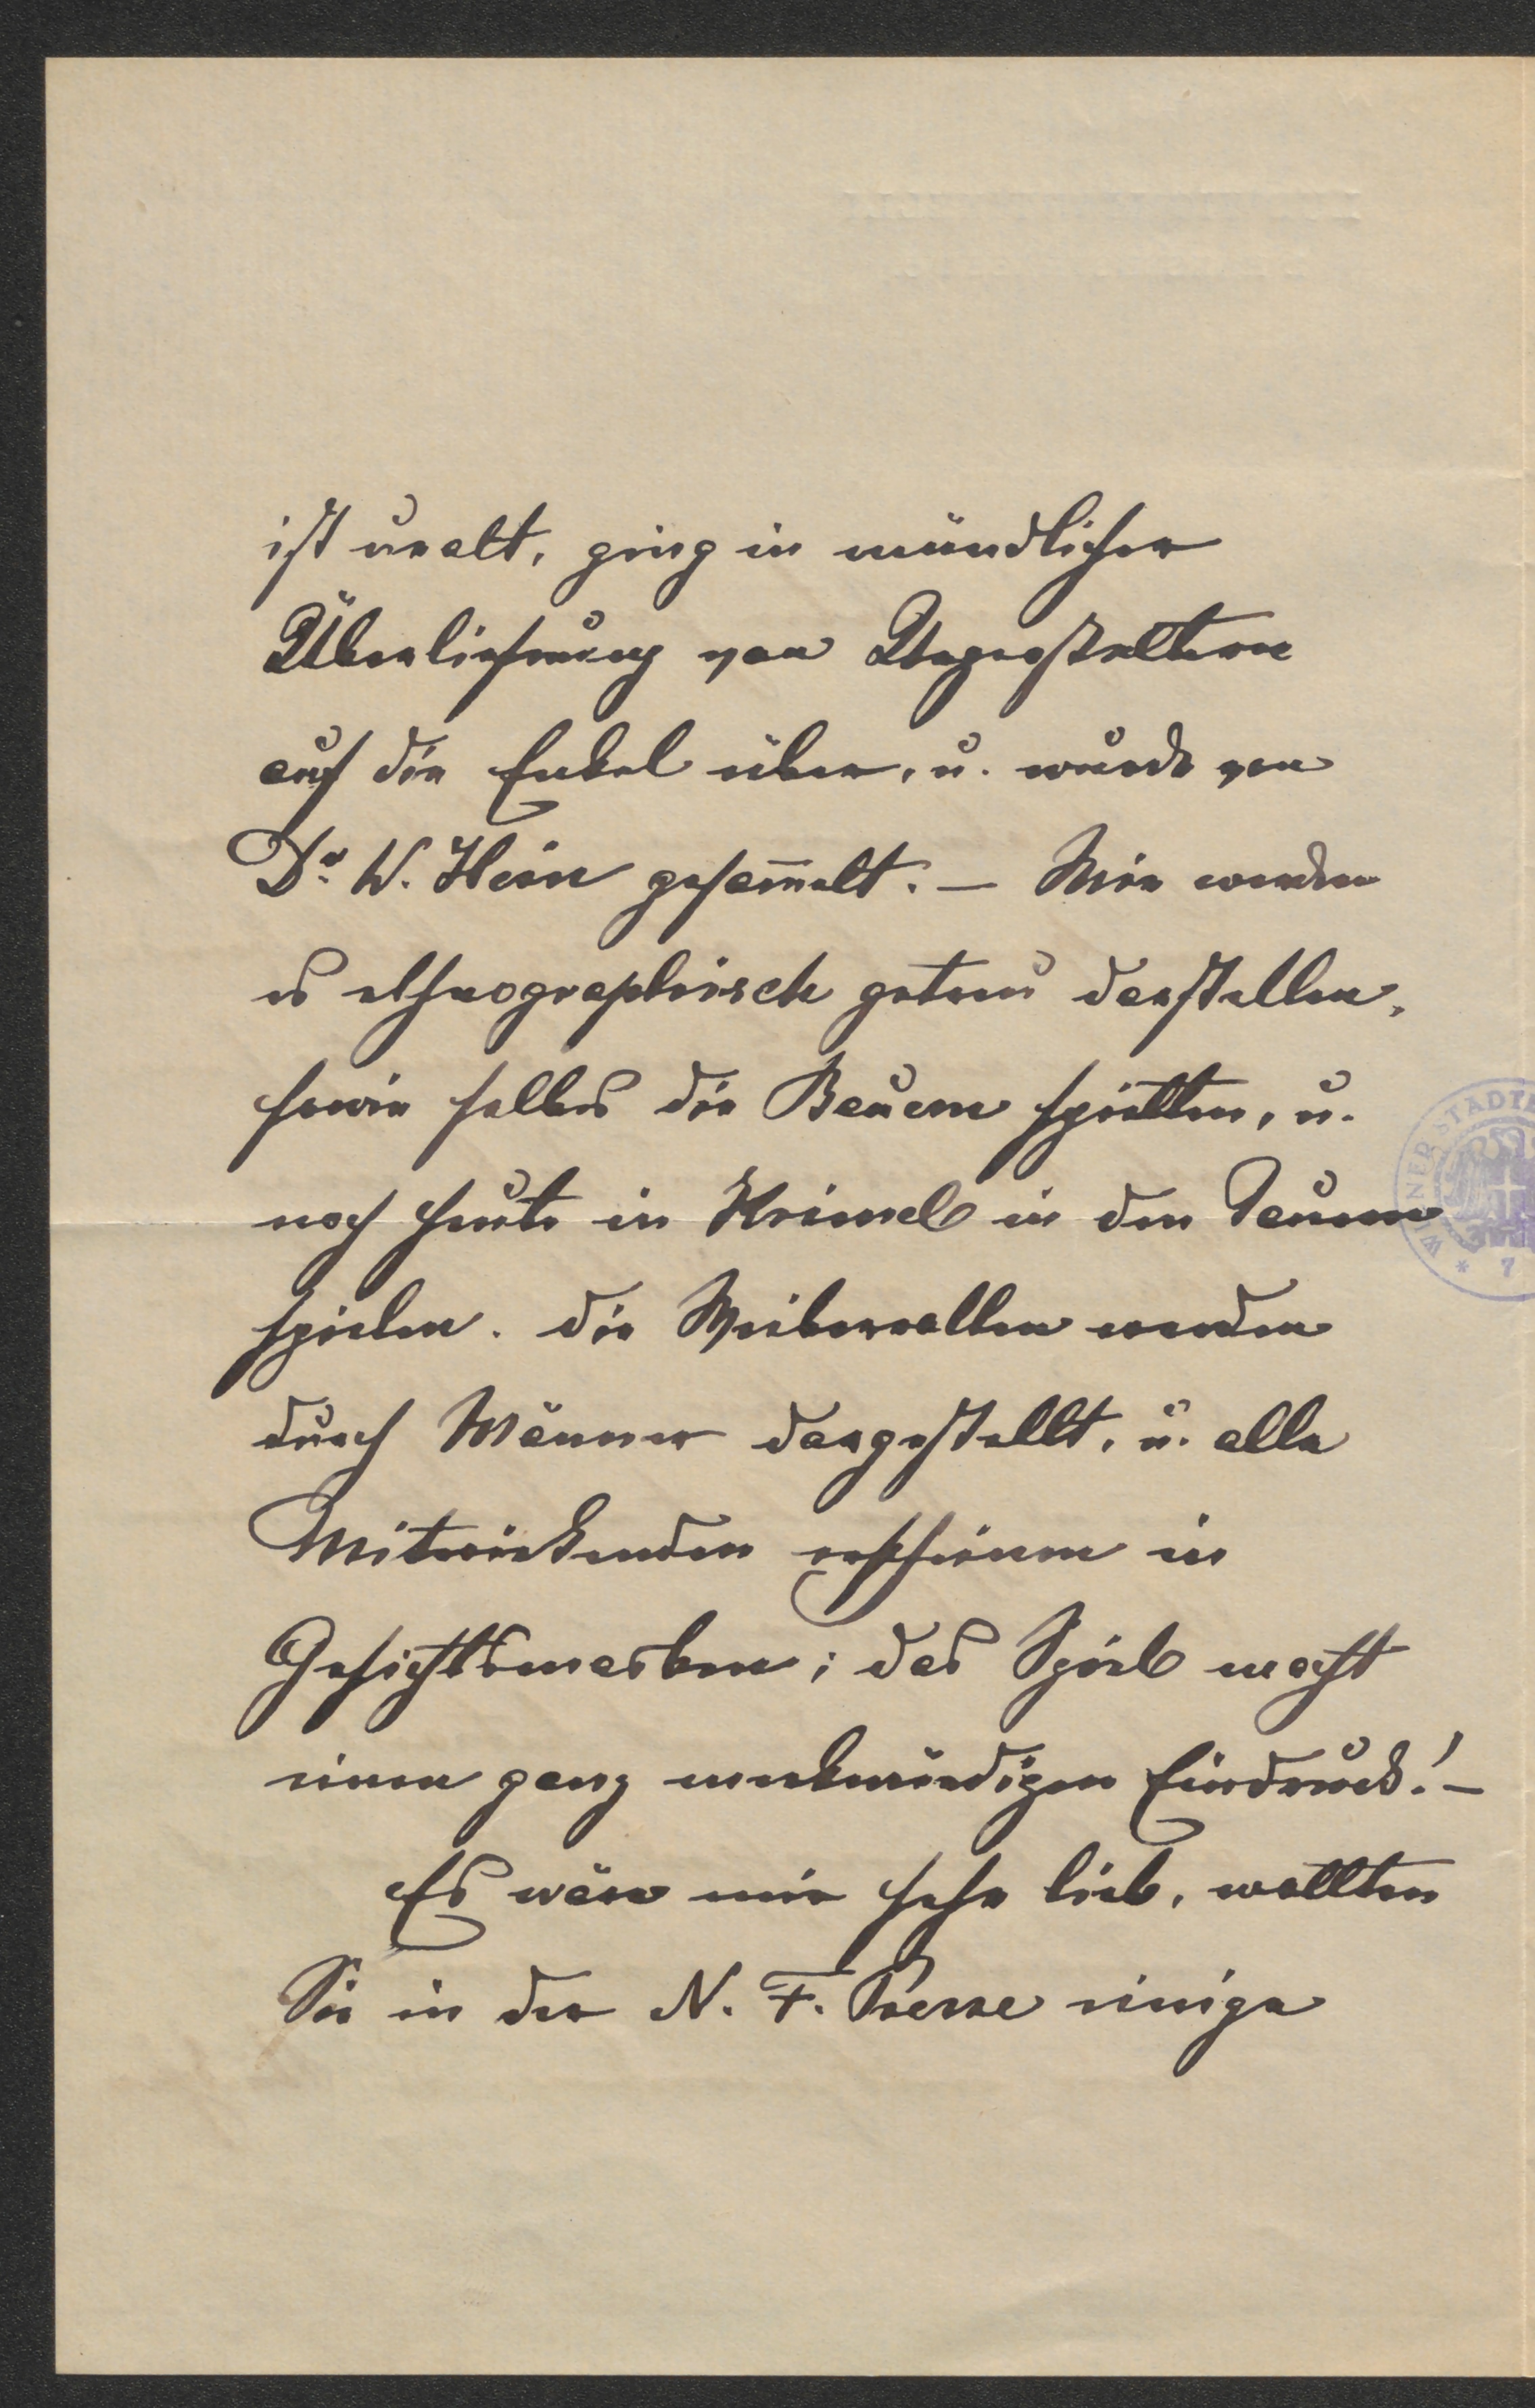 ist uralt, ging in mündlicher
Überlieferung von Urgroßeltern
auf die Enkel über, u. wurde von
Dr. W. Hein gesam̅elt. – Wir werden
es ethnographisch getreu darstellen,
sowie selbes die Bauern spielten, u.
noch heute in Krimml in den Tauern
spielen. Die Weiberrollen werden
durch Männer dargestellt, u. alle
Mitwirkenden erscheinen in
Gesichtsmasken; das Spiel macht
einen ganz merkwürdigen Eindruck! –
Es wäre mir sehr lieb, wollten
Sie in der N. F. Presse einige
WIENER STADTB
* 7